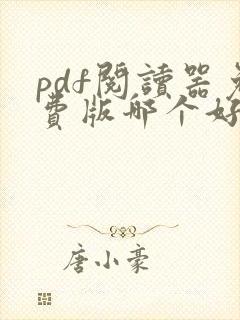 pdf閱讀器免
費版哪个好
唐小豪